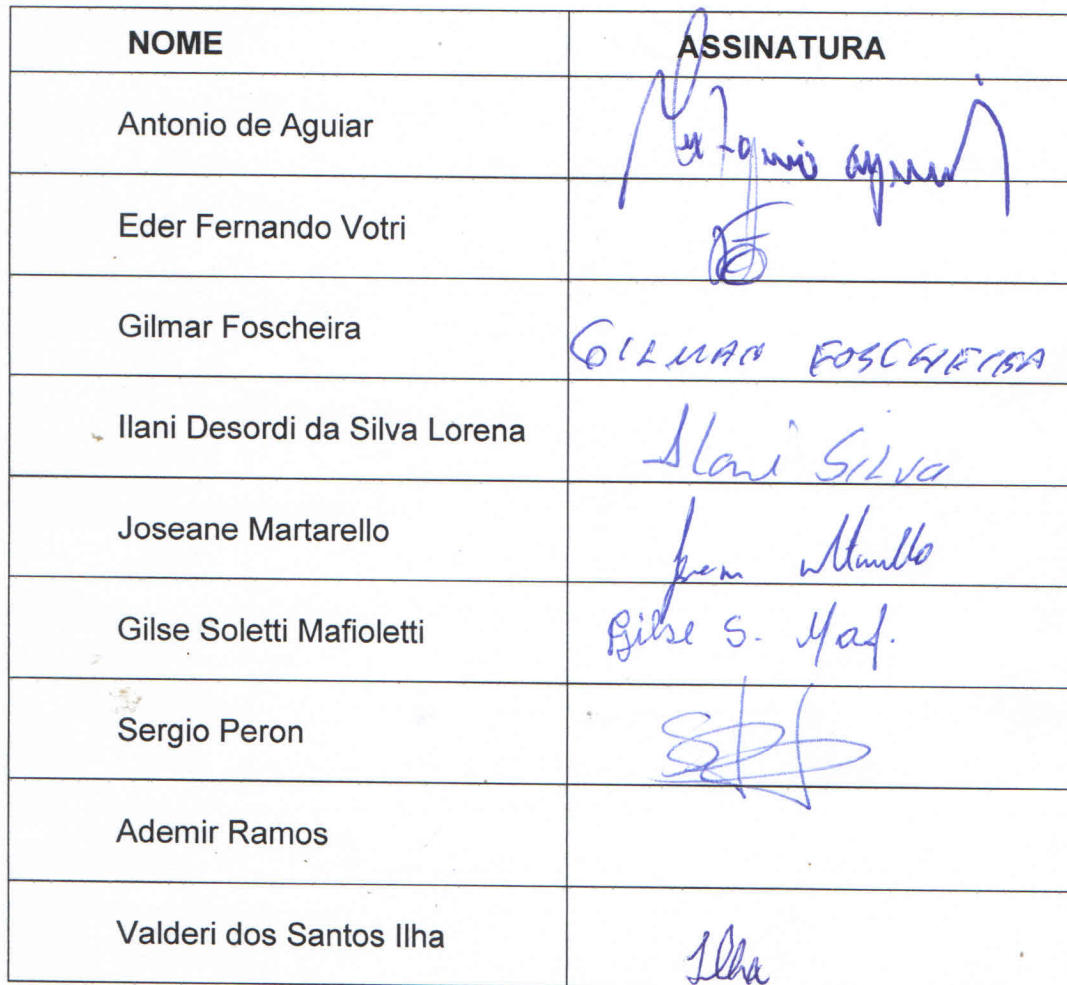 NOME ASSINATURA
Antonio de Aguiar
Eder Fernando Votri
Gilmar Foscheira GILMAR FOSCHEIRA
Ilani Desordi da Silva Lorena Ilani SILVA
Joseane Martarello
Gilse Soletti Mafioletti Gilse S. Maf.
Sergio Peron
Ademir Ramos
Valderi dos Santos Ilha Ilha